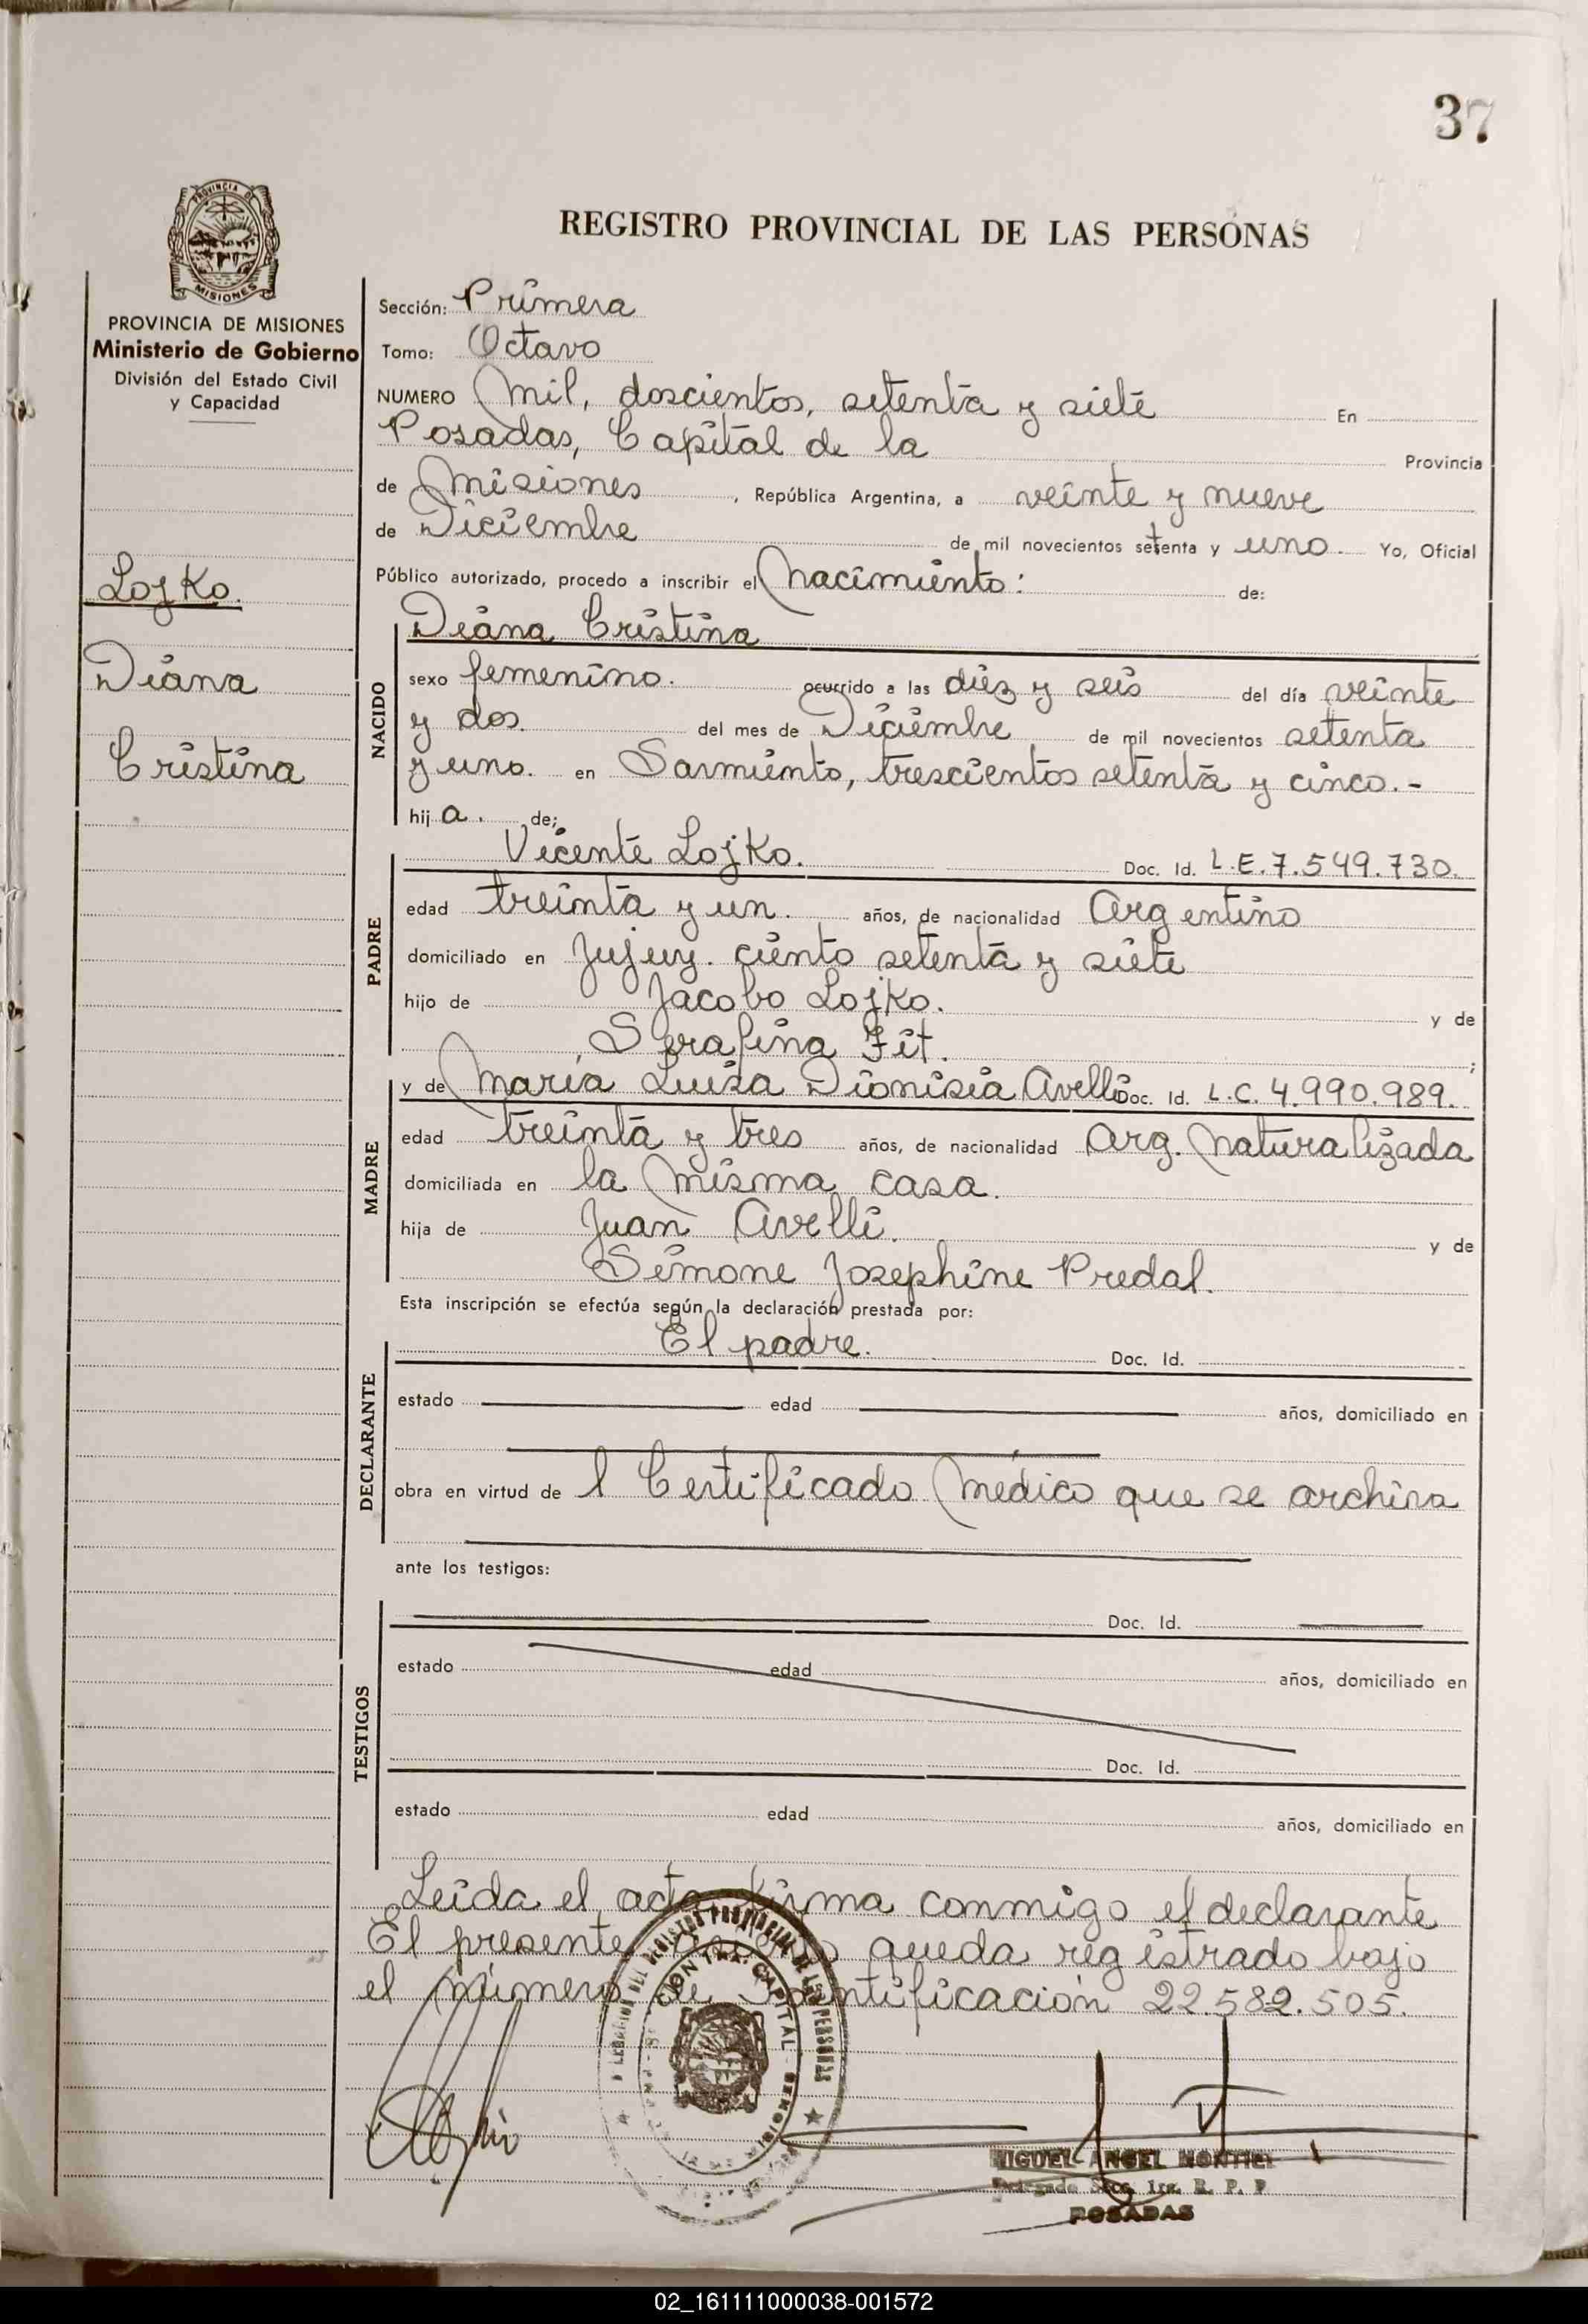 37
PROVINCIA DE
MISIONES
REGISTRO PROVINCIAL DE LAS PERSONAS
PROVINCIA DE MISIONES
Ministerio de Gobierno
División del Estado Civil
y Capacidad
Lojko.
Diana
Cristina
Sección: Primera
Tomo: Octavo
NUMERO Mil, doscientos, setenta y siete En
Posadas, Capital de la Provincia
de Misiones, República Argentina, a veinte y nueve
de Diciembre de mil novecientos setenta y uno. Yo, Oficial
Público autorizado, procedo a inscribir el Nacimiento: de:
NACIDO
Diana Cristina
sexo femenino. ocurrido a las diez y seis del día veinte
y dos. del mes de Diciembre de mil novecientos setenta
y uno. en Sarmiento, trescientos setenta y cinco.-
hij a. de;
PADRE
Vicente Lojko. Doc. Id. L.E. 7.549.730.
edad treinta y un. años, de nacionalidad Argentino
domiciliado en Jujuy. ciento setenta y siete
hijo de Jacobo Lojko. y de
Serafina Fit. ;
MADRE
y de María Luisa Dionisia Avelli Doc. Id. L.C. 4.990.989.
edad treinta y tres años, de nacionalidad Arg. Naturalizada
domiciliada en la misma casa.
hija de Juan Avelli. y de
Simone Josephine Predal.
Esta inscripción se efectúa según la declaración prestada por:
DECLARANTE
El padre. Doc. Id.
estado edad años, domiciliado en
obra en virtud de l Certificado Médico que se archiva
ante los testigos:
TESTIGOS
Doc. Id.
estado edad años, domiciliado en
Doc. Id.
estado edad años, domiciliado en
Leida el acta firma conmigo el declarante
El presente queda registrado bajo
el número de Identificación 22.582.505.
MIGUEL ANGEL MONTIEL
Delegado Secc. 1ra. R. P. P
POSADAS
02_161111000038-001572